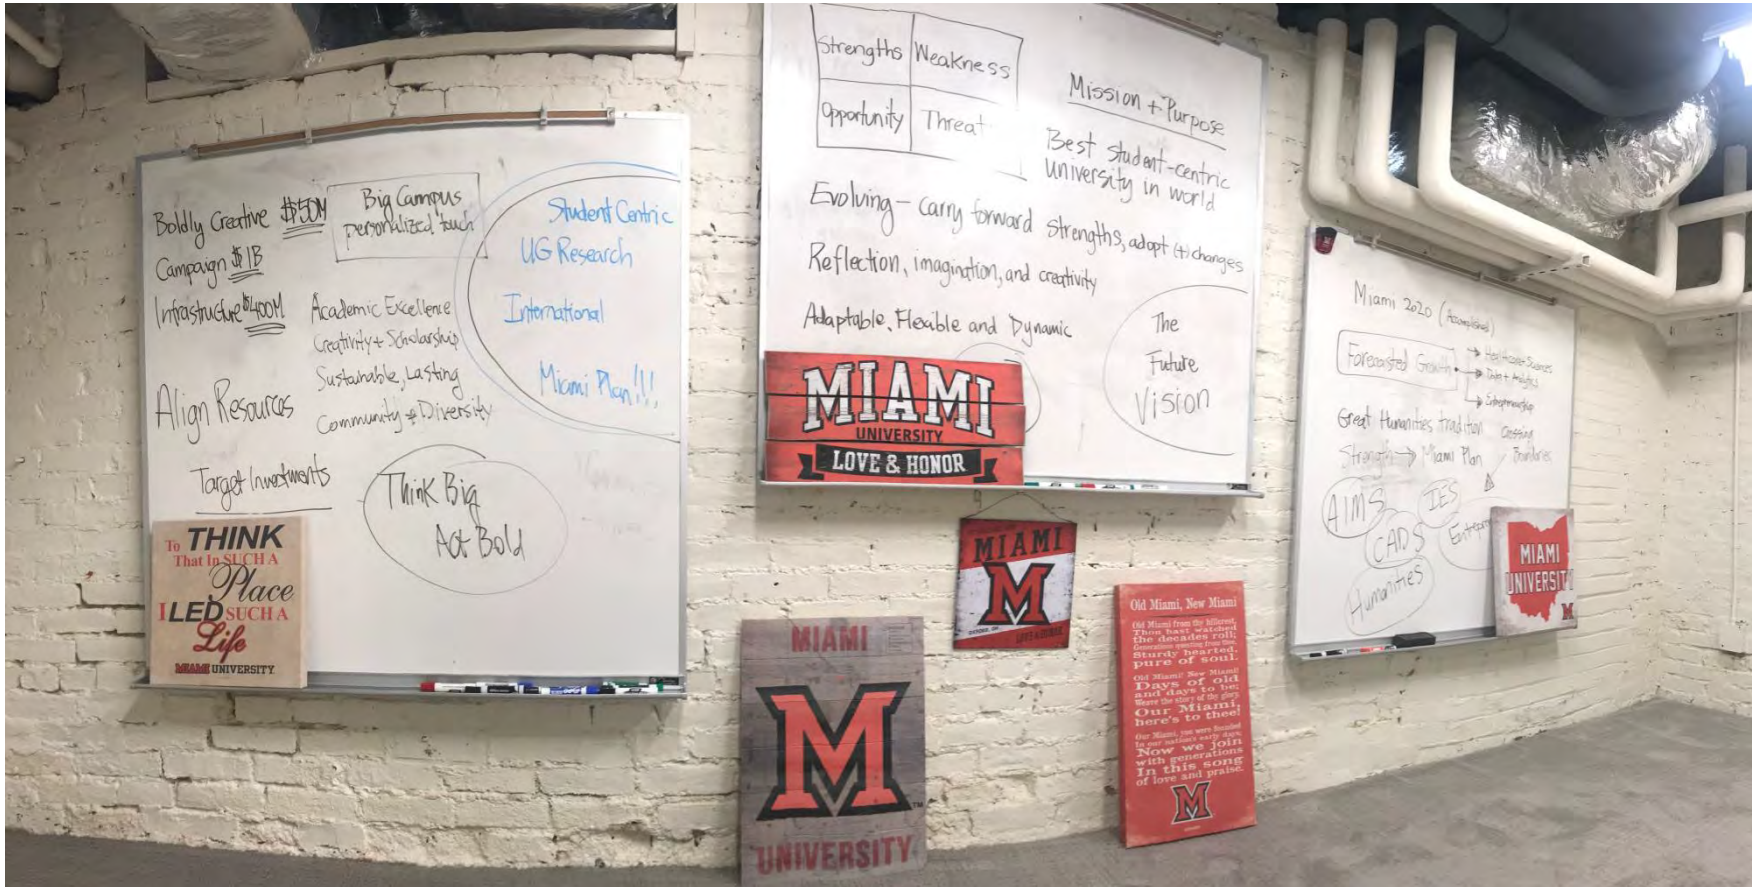 Boldly Creative $50M
Campaign $1B
Infrastructure $400M
Big Campus
personalized touch
Academic Excellence
Creativity + Scholarship
Sustainable, Lasting
Community + Diversity
Align Resources
Target Investments
Think Big
Act Bold
Student Centric
UG Research
International
Miami Plan!!!
To THINK
That In SUCH A
Place
I LED SUCH A
Life
MIAMI UNIVERSITY
Strengths Weakness
Opportunity Threat
Mission + Purpose
Best student-centric
University in world
Evolving – carry forward strengths, adopt (+) changes
Reflection, imagination, and creativity
Adaptable, Flexible and Dynamic
The
Future
Vision
MIAMI
UNIVERSITY
LOVE & HONOR
MIAMI
M
OXFORD, OH
LOVE & HONOR
MIAMI
M
TM
UNIVERSITY
Old Miami, New Miami
Old Miami from thy hillcrest,
Thou hast watched
the decades roll;
Generations questing from thee,
Sturdy hearted,
pure of soul.
Old Miami! New Miami!
Days of old
and days to be;
Weave the story of thy glory,
Our Miami,
here's to thee!
Our Miami, you were founded
In our nation's early days;
Now we join
with generations
In this song
of love and praise.
M
Miami 2020 (Accomplished)
Forecasted Growth
Healthcare Sciences
Data + Analytics
Entrepreneurship
Great Humanities tradition
Crossing
Boundaries
Strength → Miami Plan
AIMS
IES
CADS
Entrepr
Humanities
MIAMI
UNIVERSITY
M